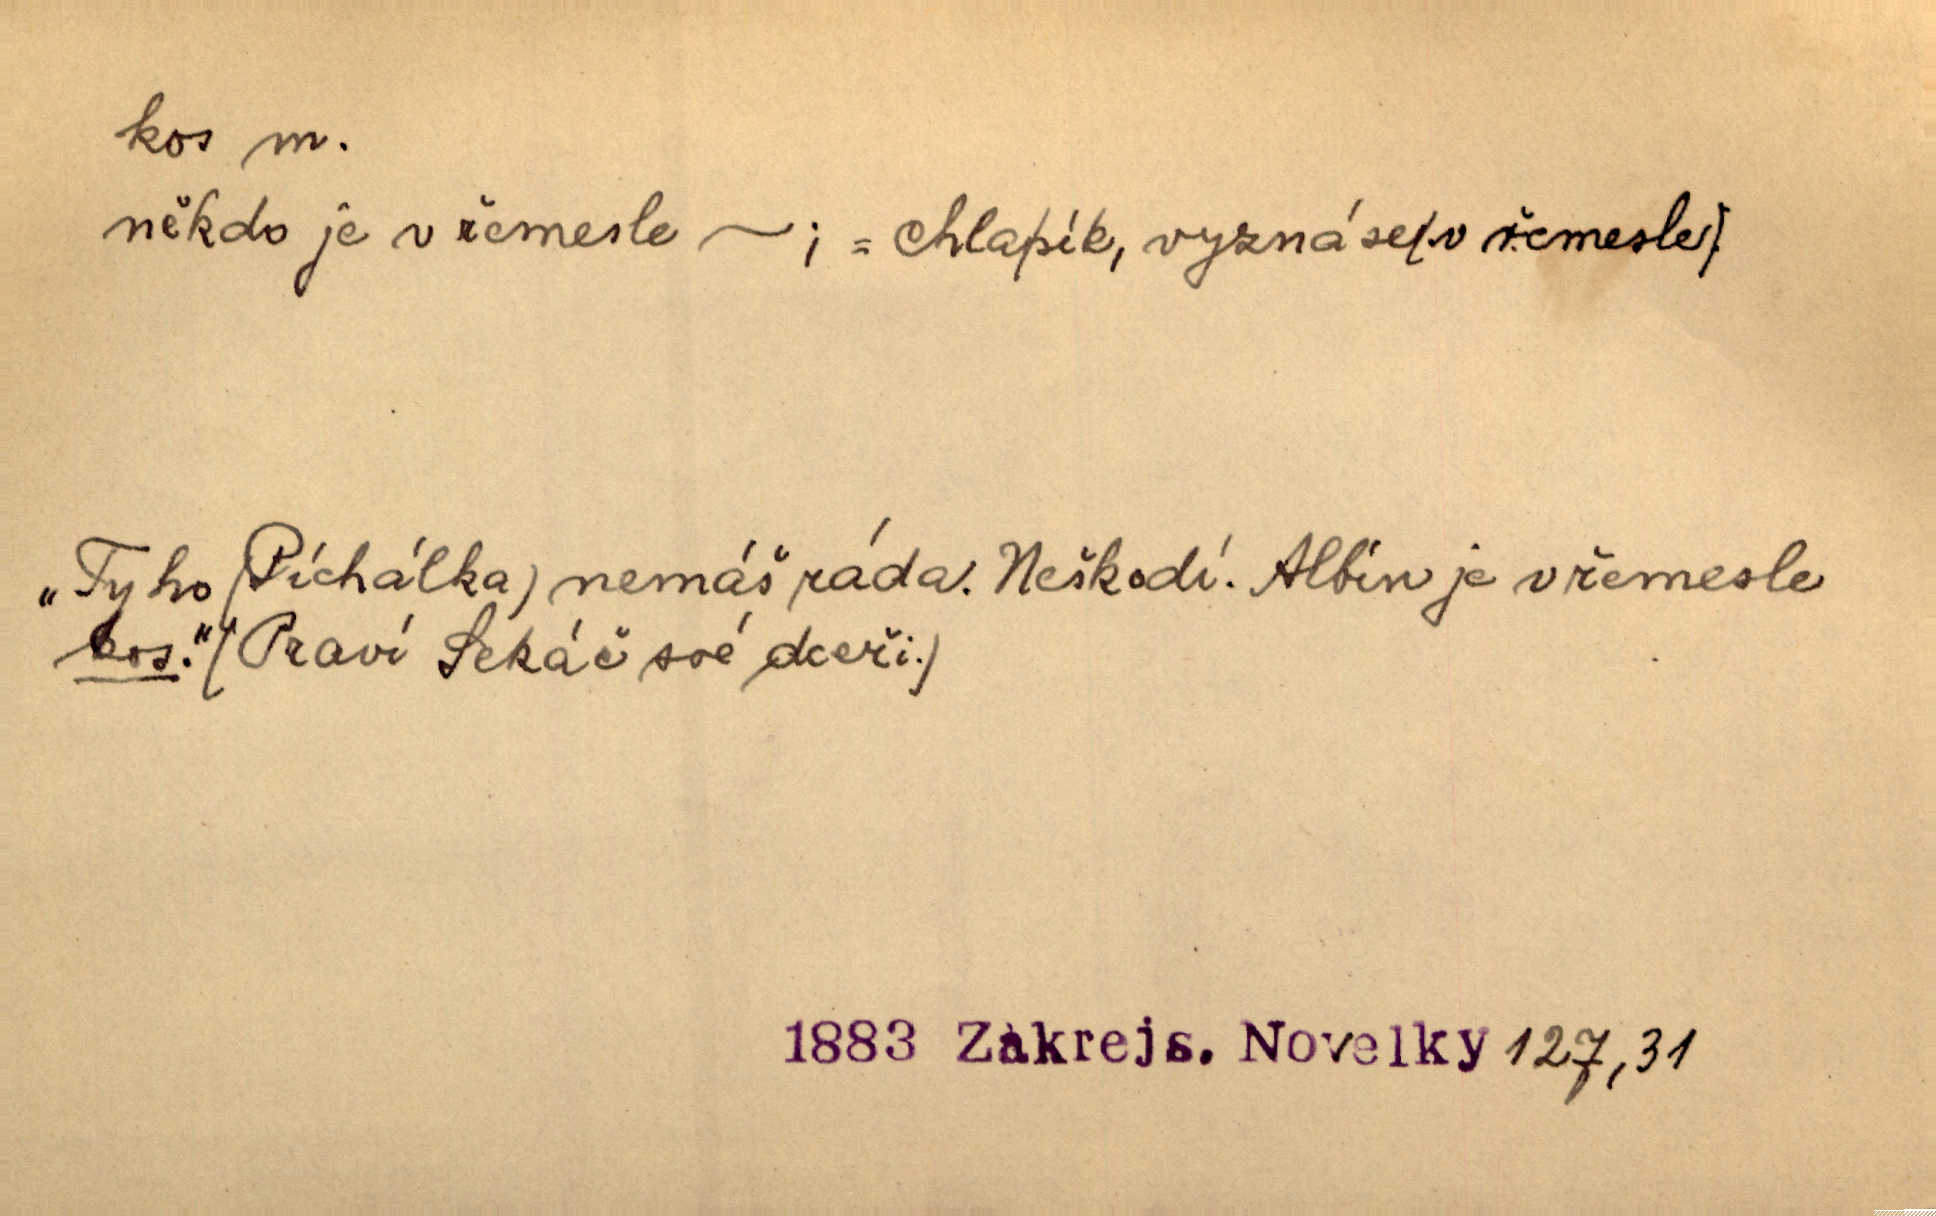 kos m.
někdo je v řemesle ~; = chlapík, vyzná se (v řemesle).
„Ty ho (Píchálka) nemáš ráda. Neškodí. Albín je v řemesle
kos.“ (Praví Sekáč své dceři.)
1883 Zákrejs. Novelky 127,31